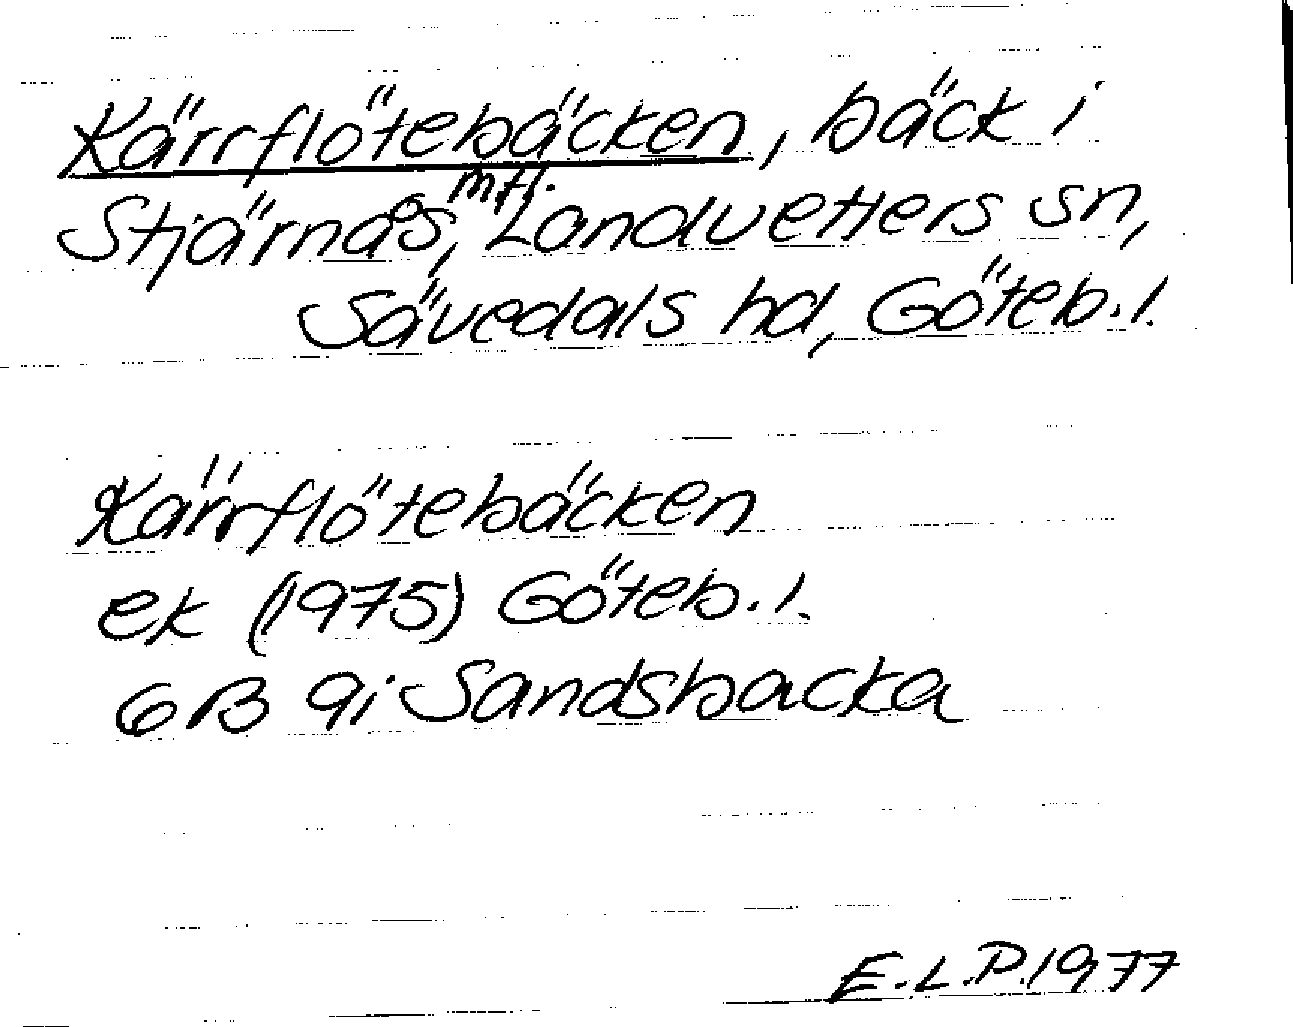 Kärrflötebäcken, bäck i
Stjärnås, m.fl. Landvetters sn,
Sävedals hd, Göteb. l.
Kärrflötebäcken
ek (1975) Göteb. l.
6B 9i Sandsbacka
E.L.P. 1977